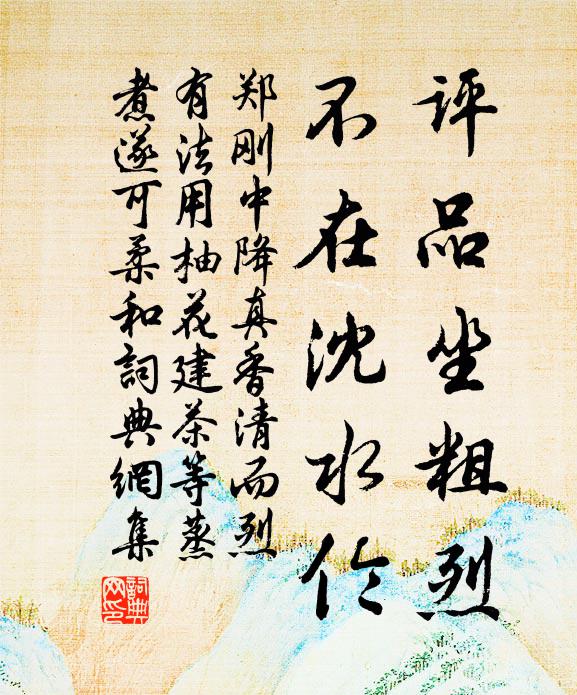 评品坐粗烈
不在沈水伦
郑刚中降真香清而烈
有法用柚花建茶等蒸
煮遂可柔和词典網集
詞典
网印